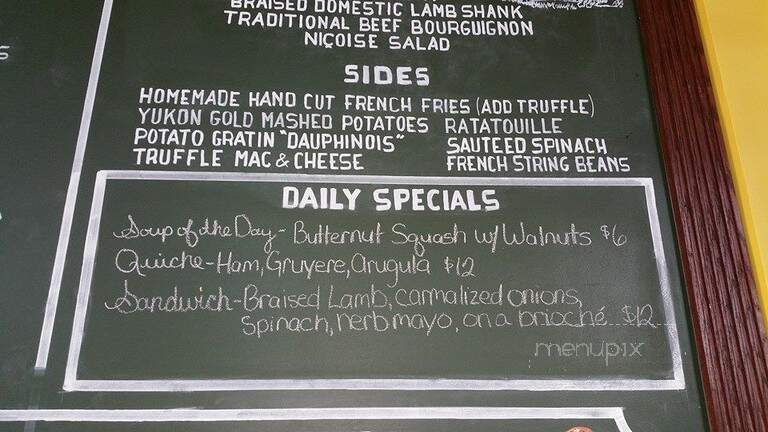 BRAISED DOMESTIC LAMB SHANK
TRADITIONAL BEEF BOURGUIGNON
NIÇOISE SALAD
SIDES
HOMEMADE HAND CUT FRENCH FRIES (ADD TRUFFLE)
YUKON GOLD MASHED POTATOES RATATOUILLE
POTATO GRATIN "DAUPHINOIS" SAUTEED SPINACH
TRUFFLE MAC & CHEESE FRENCH STRING BEANS
DAILY SPECIALS
Soup of the Day - Butternut Squash w/ Walnuts $6
Quiche - Ham, Gruyere, Arugula $12
Sandwich - Braised Lamb, carmalized onions,
spinach, herb mayo, on a brioche $12
menupix